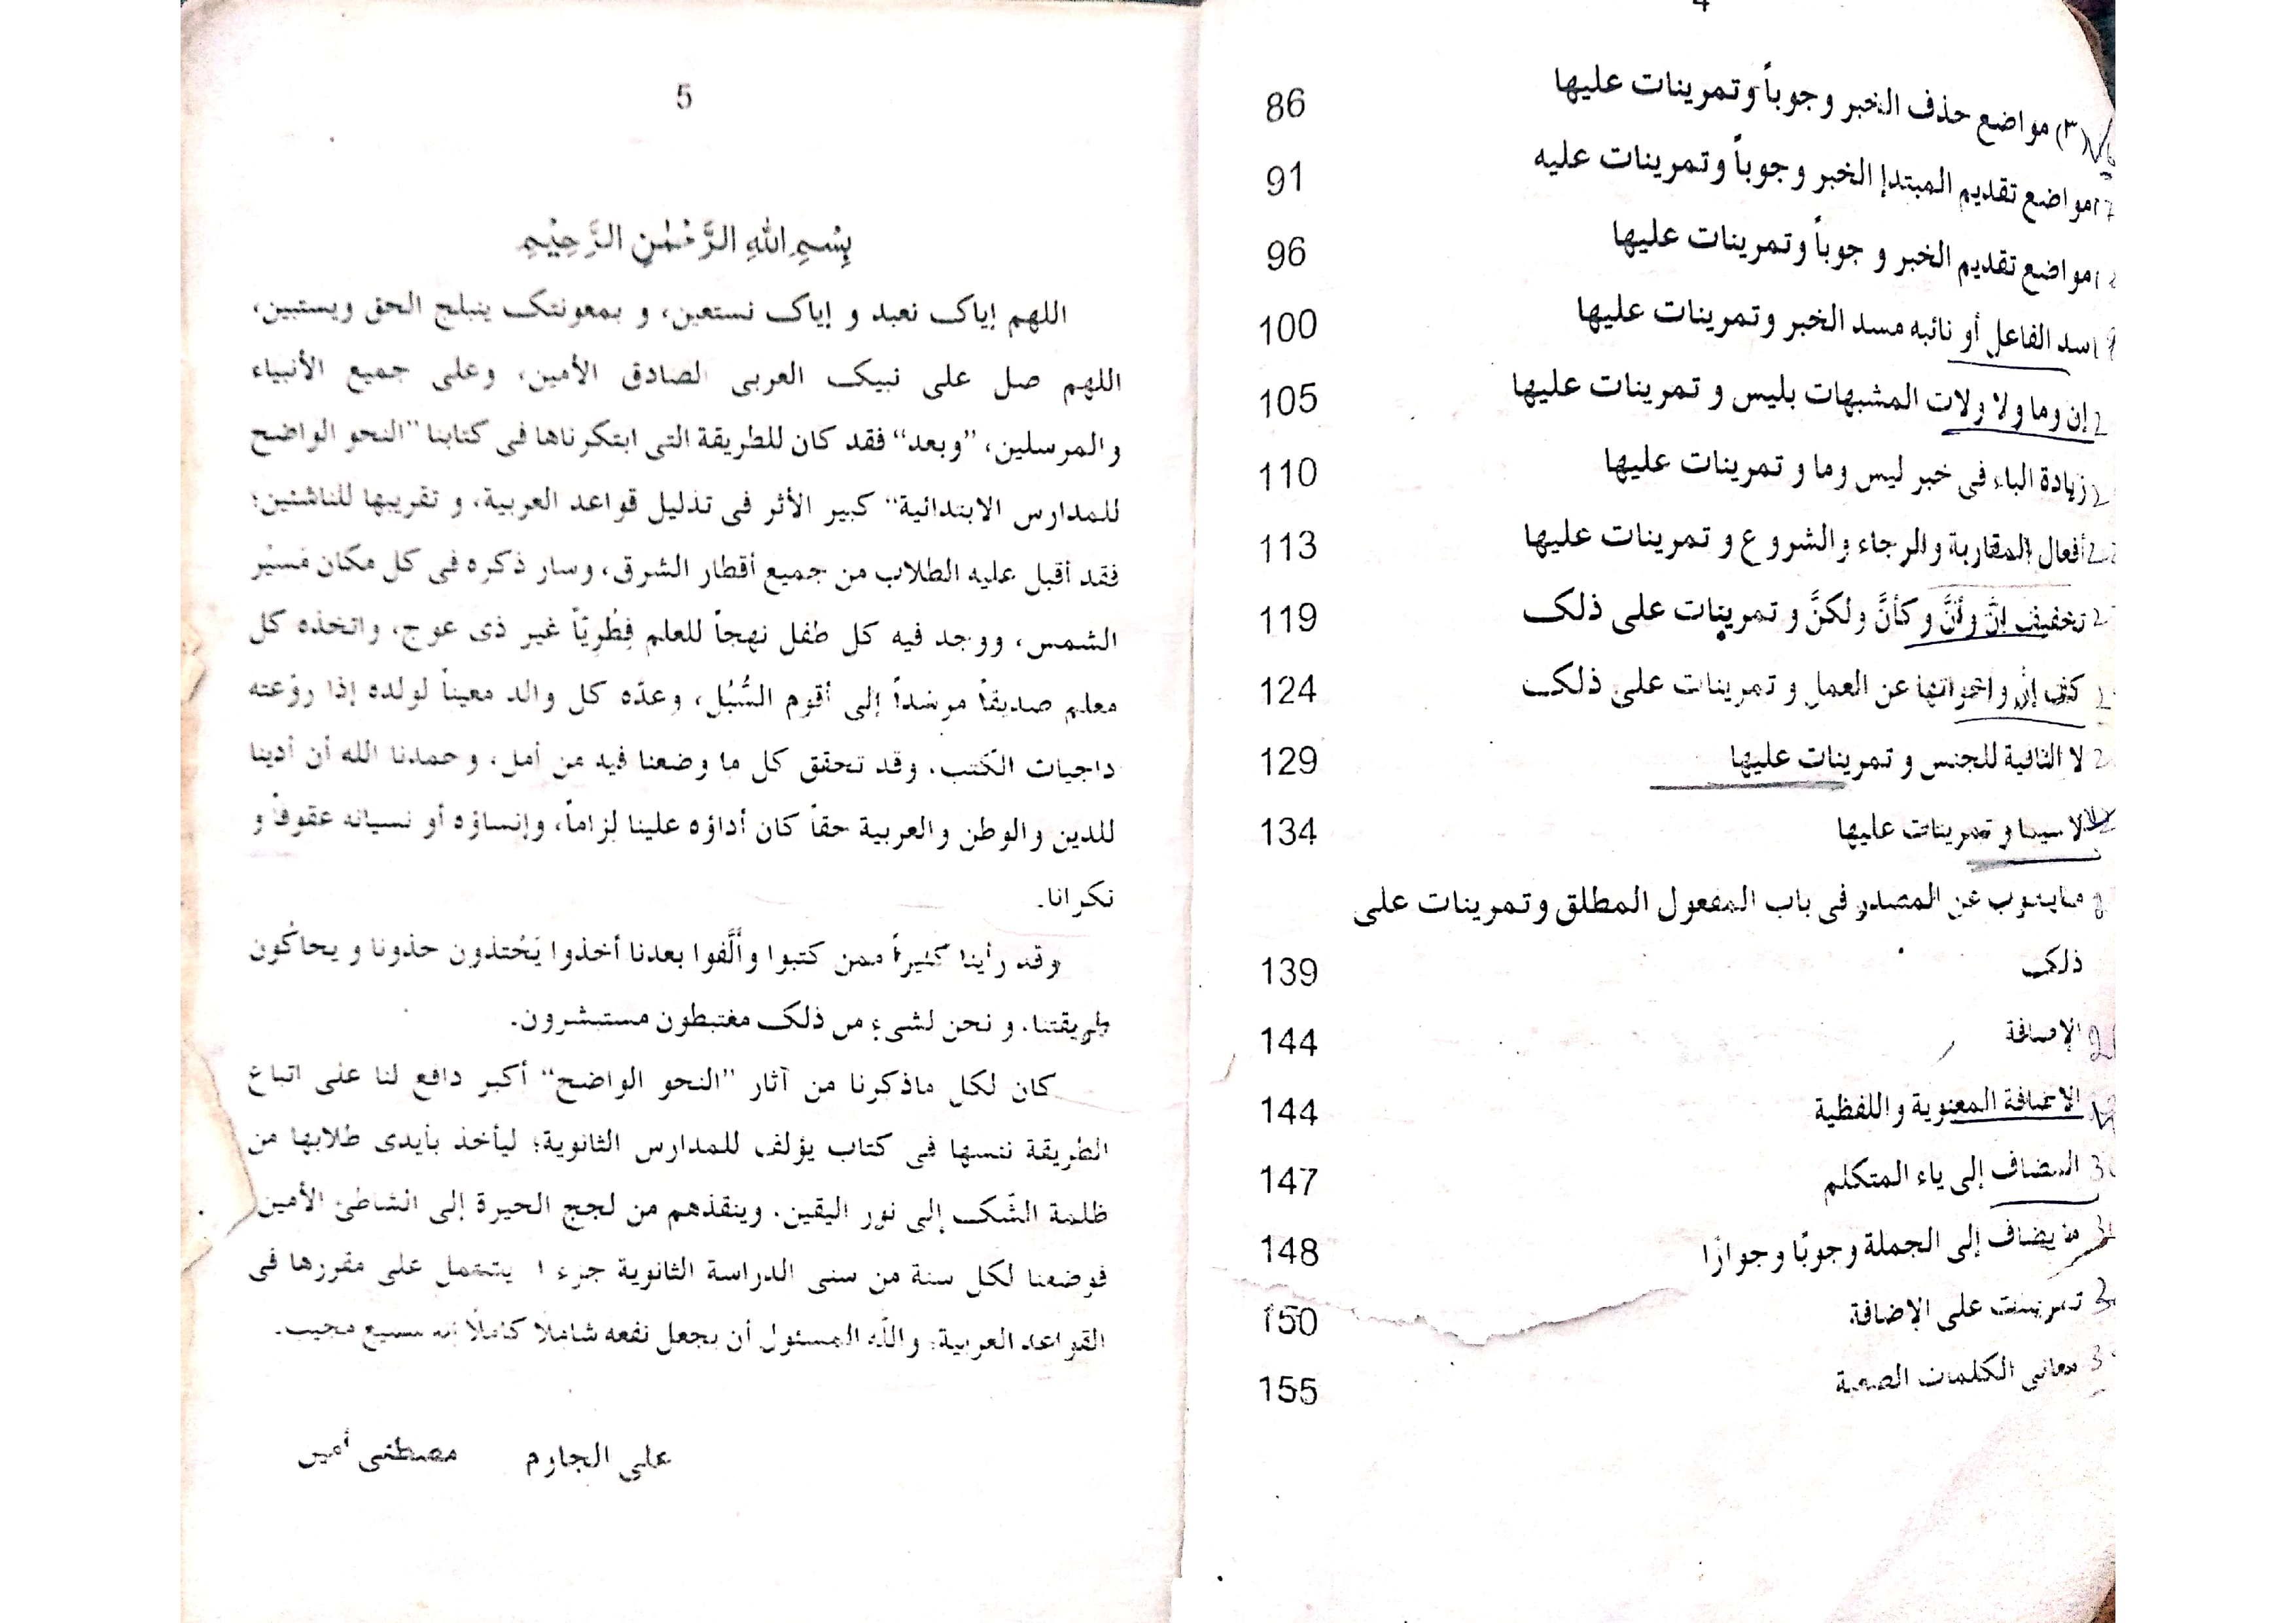 4
(٣) مواضع حذف الخبر وجوباً وتمرينات عليها 86
مواضع تقديم المبتدإ الخبر وجوباً وتمرينات عليه 91
مواضع تقديم الخبر و جوباً وتمرينات عليها 96
سد الفاعل أو نائبه مسد الخبر وتمرينات عليها 100
إن وما ولا ولات المشبهات بليس و تمرينات عليها 105
زيادة الباء فى خبر ليس وما و تمرينات عليها 110
أفعال المقاربة والرجاء والشروع و تمرينات عليها 113
تخفيف إنَّ وأنَّ وكأنَّ ولكنَّ و تمرينات على ذلک 119
كف إن واخواتها عن العمل و تمرينات على ذلک 124
لا النافية للجنس و تمرينات عليها 129
لاسيما و تمرينات عليها 134
ماينوب عن المصدر فى باب المفعول المطلق وتمرينات على
ذلک 139
الإضافة 144
الاضافة المعنوية واللفظية 144
المضاف إلى ياء المتكلم 147
ما يضاف إلى الجملة وجوبًا وجوازًا 148
تمرينات على الإضافة 150
معانى الكلمات الصعبة 155
5
بِسْمِ اللهِ الرَّحْمٰنِ الرَّحِيْمِ
اللهم إياک نعبد و إياک نستعين، و بمعونتک ينبلج الحق ويستبين،
اللهم صل على نبيک العربى الصادق الأمين، وعلى جميع الأنبياء
والمرسلين، ”وبعد“ فقد كان للطريقة التى ابتكرناها فى كتابنا ”النحو الواضح
للمدارس الابتدائية“ كبير الأثر فى تذليل قواعد العربية، و تقريبها للناشئين؛
فقد أقبل عليه الطلاب من جميع أقطار الشرق، وسار ذكره فى كل مكان مَسيْر
الشمس، ووجد فيه كل طفل نهجاً للعلم فِطْرِيّاً غير ذى عوج، واتخذه كل
معلم صديقاً مرشداً إلى أقوم السُّبُل، وعدّه كل والد معيناً لولده إذا روّعته
داجيات الكُتب. وقد تحقق كل ما وضعنا فيه من أمل، وحمدنا الله أن أدينا
للدين والوطن والعربية حقاً كان أداؤه علينا لِزاماً، وإنساؤه أو نسيانه عقوقاً و
نكرانا.
وقد رأينا كثيراً ممن كتبوا وأَلَّفوا بعدنا أخذوا يَحْتذون حذونا و يحاكُون
طريقتنا. و نحن لشىءٍ من ذلک مغتبطون مستبشرون.
كان لكل ماذكرنا من آثار ”النحو الواضح“ أكبر دافع لنا على اتباع
الطريقة نفسها فى كتاب يؤلف للمدارس الثانوية؛ ليأخذ بأيدى طلابها من
ظلمة الشّک إلى نور اليقين. وينقذهم من لجج الحيرة إلى الشاطئ الأمين
فوضعنا لكل سنة من سنى الدراسة الثانوية جزء ا يشتمل على مقررها فى
القواعد العربية، واللّه المسئول أن يجعل نفعه شاملاً كاملاً إنه سميع مجيب.
على الجارم مصطفى أمين